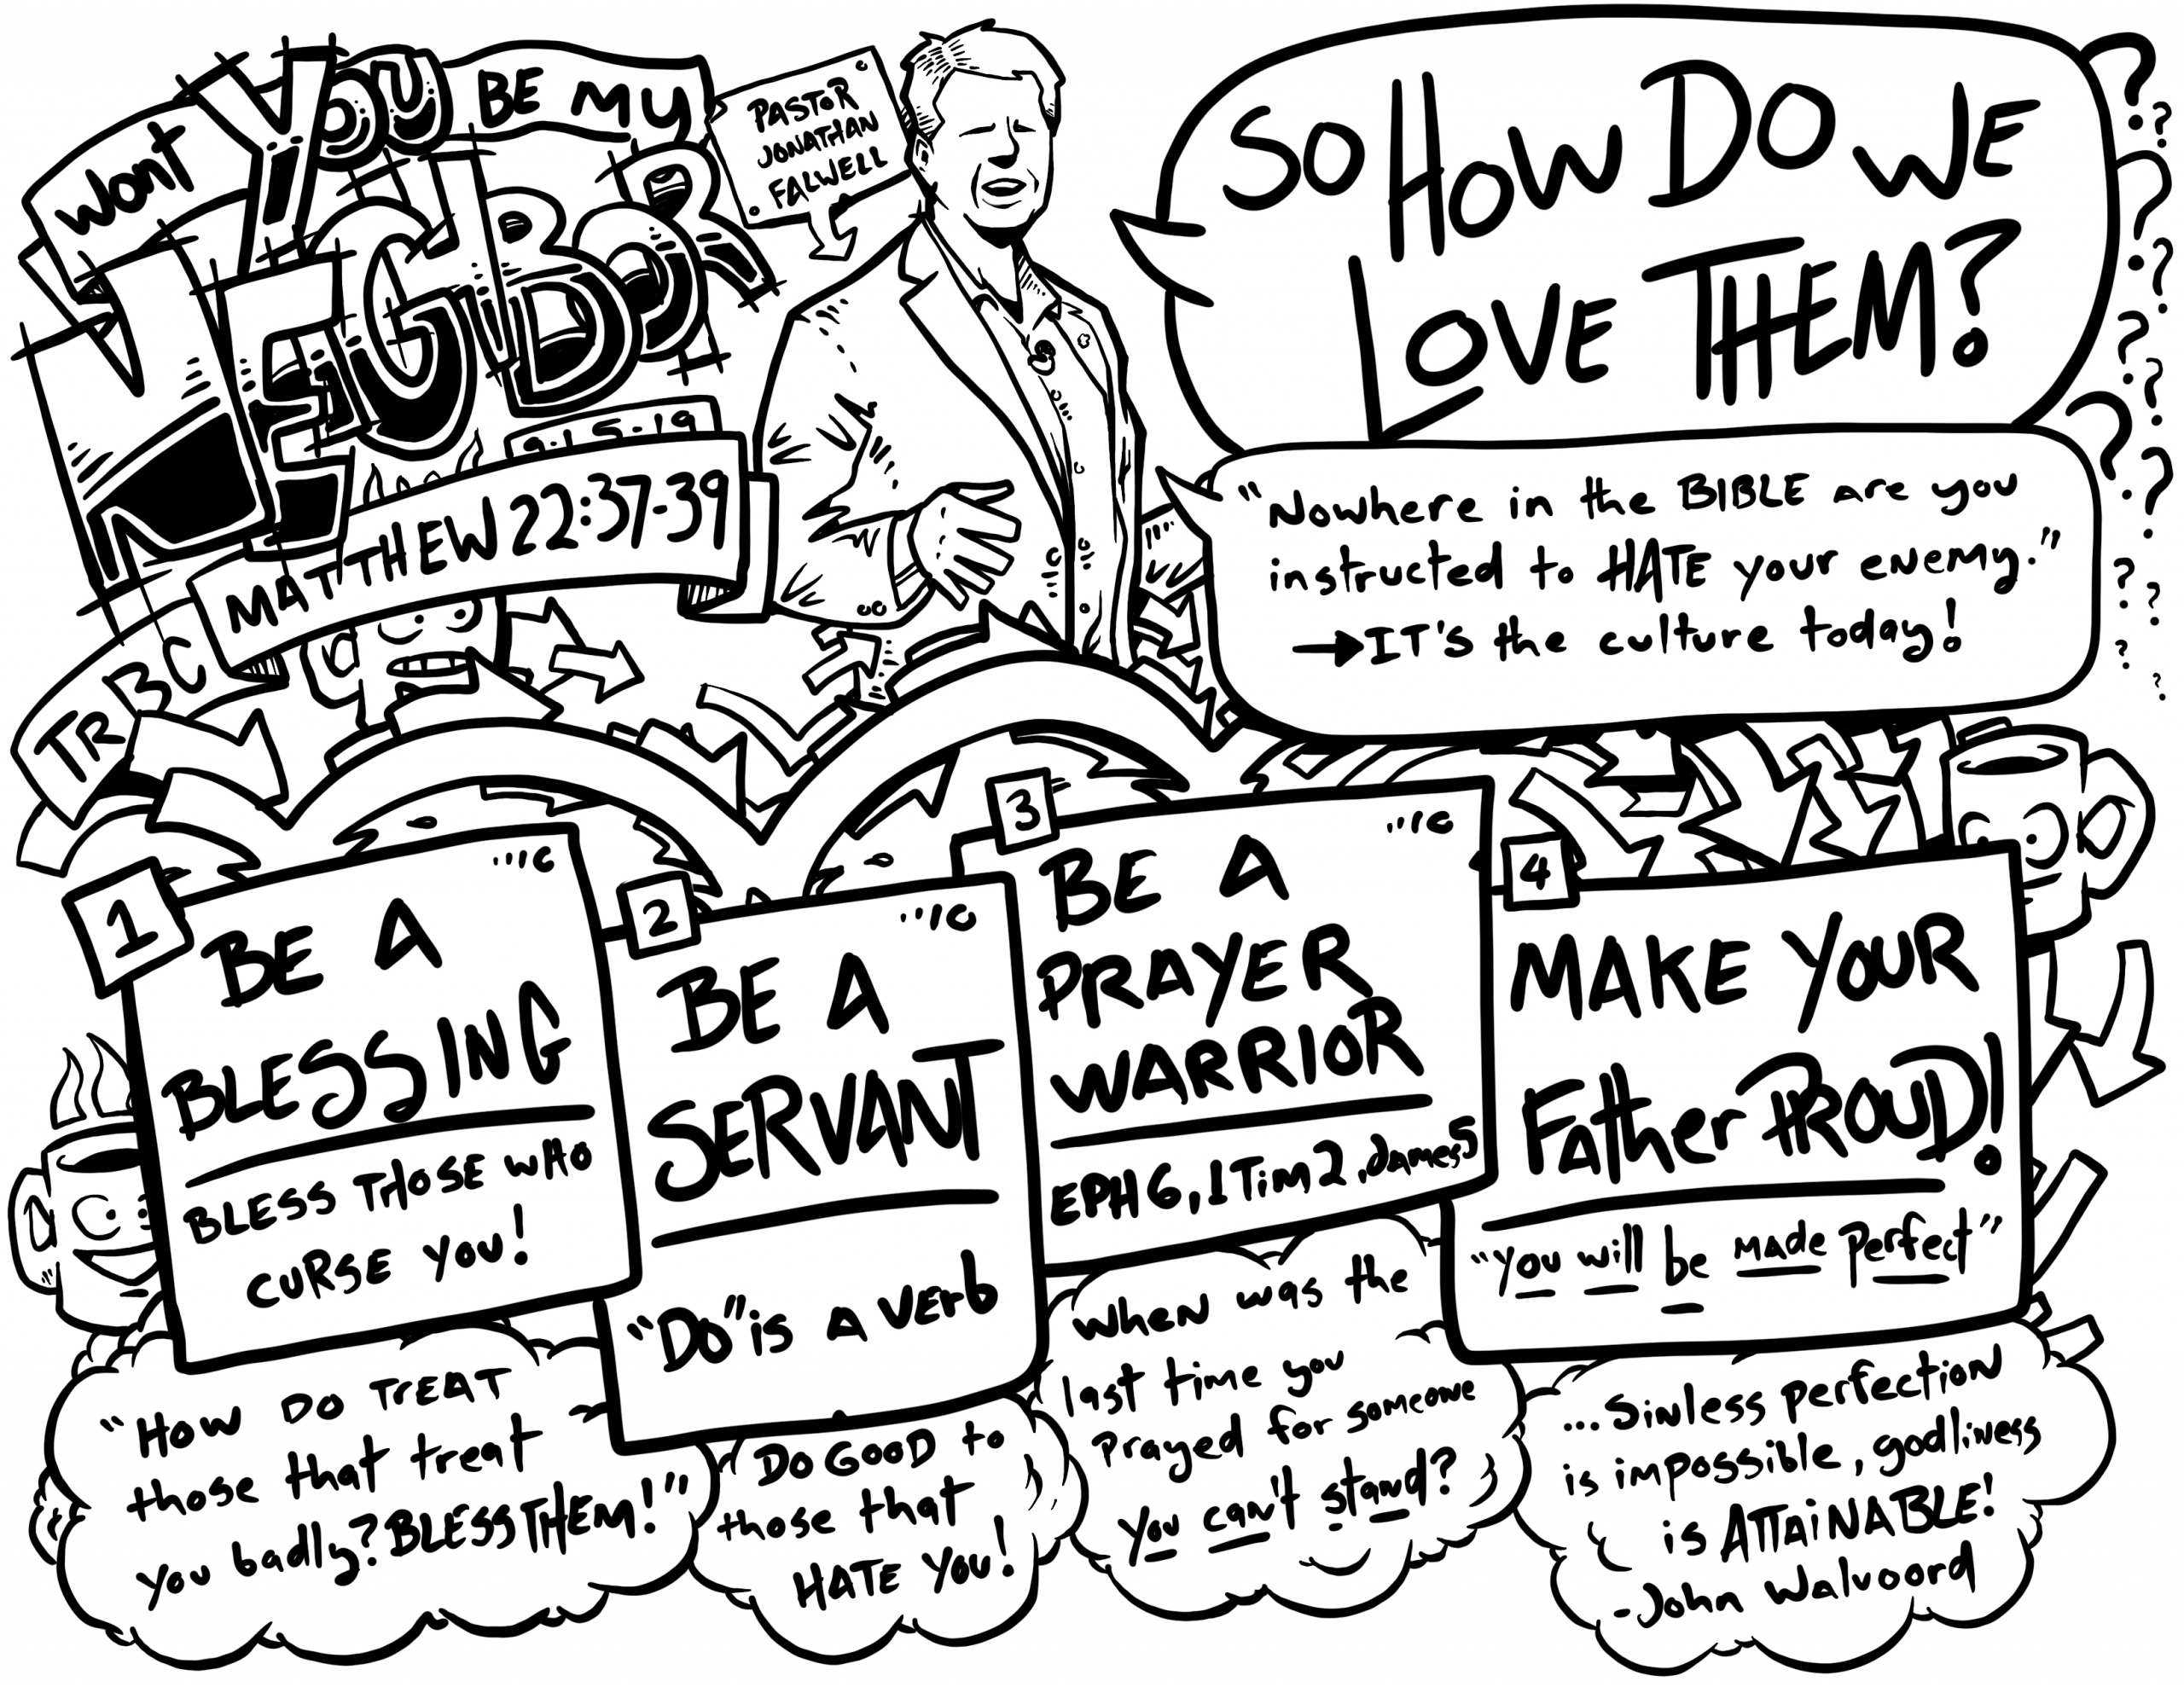 Wont
YOU
BE MY
NEIGHBOR
9.15.19
MATTHEW 22:37-39
TRBC
PASTOR
JONATHAN
FALWELL
SO HOW DO WE
LOVE THEM?
"Nowhere in the BIBLE are you
instructed to HATE your enemy."
→IT's the culture today!
1
BE A
BLESSING
BLESS THOSE WHO
CURSE YOU!
"HOW DO TREAT
those that treat
you badly? BLESS THEM!"
2
BE A
SERVANT
"DO" is A Verb
DO GOOD to
those that
HATE YOU!
3
BE A
PRAYER
WARRIOR
EPH 6, 1 Tim 2, James 5
When was the
last time you
prayed for someone
you can't stand?
4
MAKE YOUR
Father PROUD!
"You will be made perfect"
...Sinless perfection
is impossible, godliness
is ATTAINABLE!
-John Walvoord